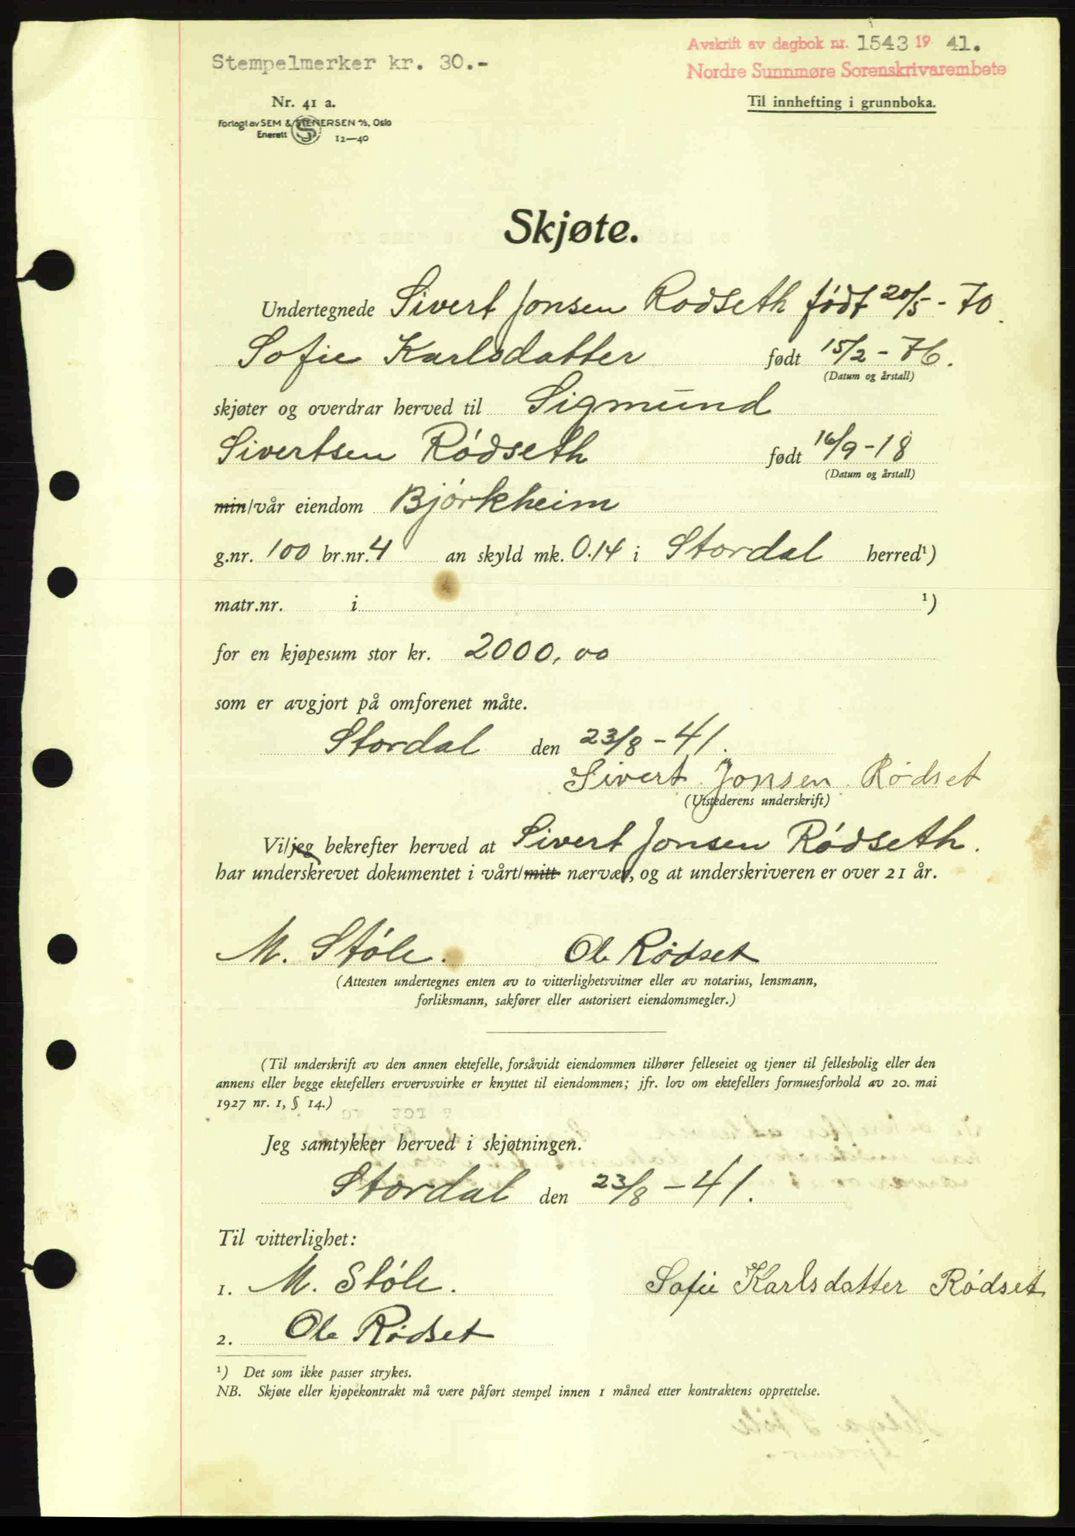 Avskrift av dagbok nr. 1543 19 41.
Stempelmerker kr. 30.-
Nordre Sunnmøre Sorenskrivarembete
Nr. 41 a.
Til innhefting i grunnboka.
Forlagt av SEM & STENERSEN A/S, Oslo
Enerett
12—40
Skjøte.
Undertegnede Sivert Jonsen Rødseth født 20/5 - 70.
Sofie Karlsdatter født 15/2 - 76.
(Datum og årstall)
skjøter og overdrar herved til Sigmund
Sivertsen Rødseth født 16/9 - 18
(Datum og årstall)
min/vår eiendom Bjørkheim
g.nr. 100 br.nr. 4 an skyld mk. 0.14 i Stordal herred¹)
matr.nr. i ¹)
for en kjøpesum stor kr. 2000,00
som er avgjort på omforenet måte.
Stordal den 23/8 - 41.
Sivert Jonsen Rødset
(Utstederens underskrift)
Vi/jeg bekrefter herved at Sivert Jonsen Rødseth.
har underskrevet dokumentet i vårt/mitt nærvær, og at underskriveren er over 21 år.
M. Støle. Ole Rødset
(Attesten undertegnes enten av to vitterlighetsvitner eller av notarius, lensmann,
forliksmann, sakfører eller autorisert eiendomsmegler.)
(Til underskrift av den annen ektefelle, forsåvidt eiendommen tilhører felleseiet og tjener til fellesbolig eller den
annens eller begge ektefellers ervervsvirke er knyttet til eiendommen; jfr. lov om ektefellers formuesforhold av 20. mai
1927 nr. 1, § 14.)
Jeg samtykker herved i skjøtningen.
Stordal den 23/8 - 41.
Til vitterlighet:
1. M. Støle. Sofie Karlsdatter Rødset
2. Ole Rødset
¹) Det som ikke passer strykes.
NB. Skjøte eller kjøpekontrakt må være påført stempel innen 1 måned etter kontraktens opprettelse.